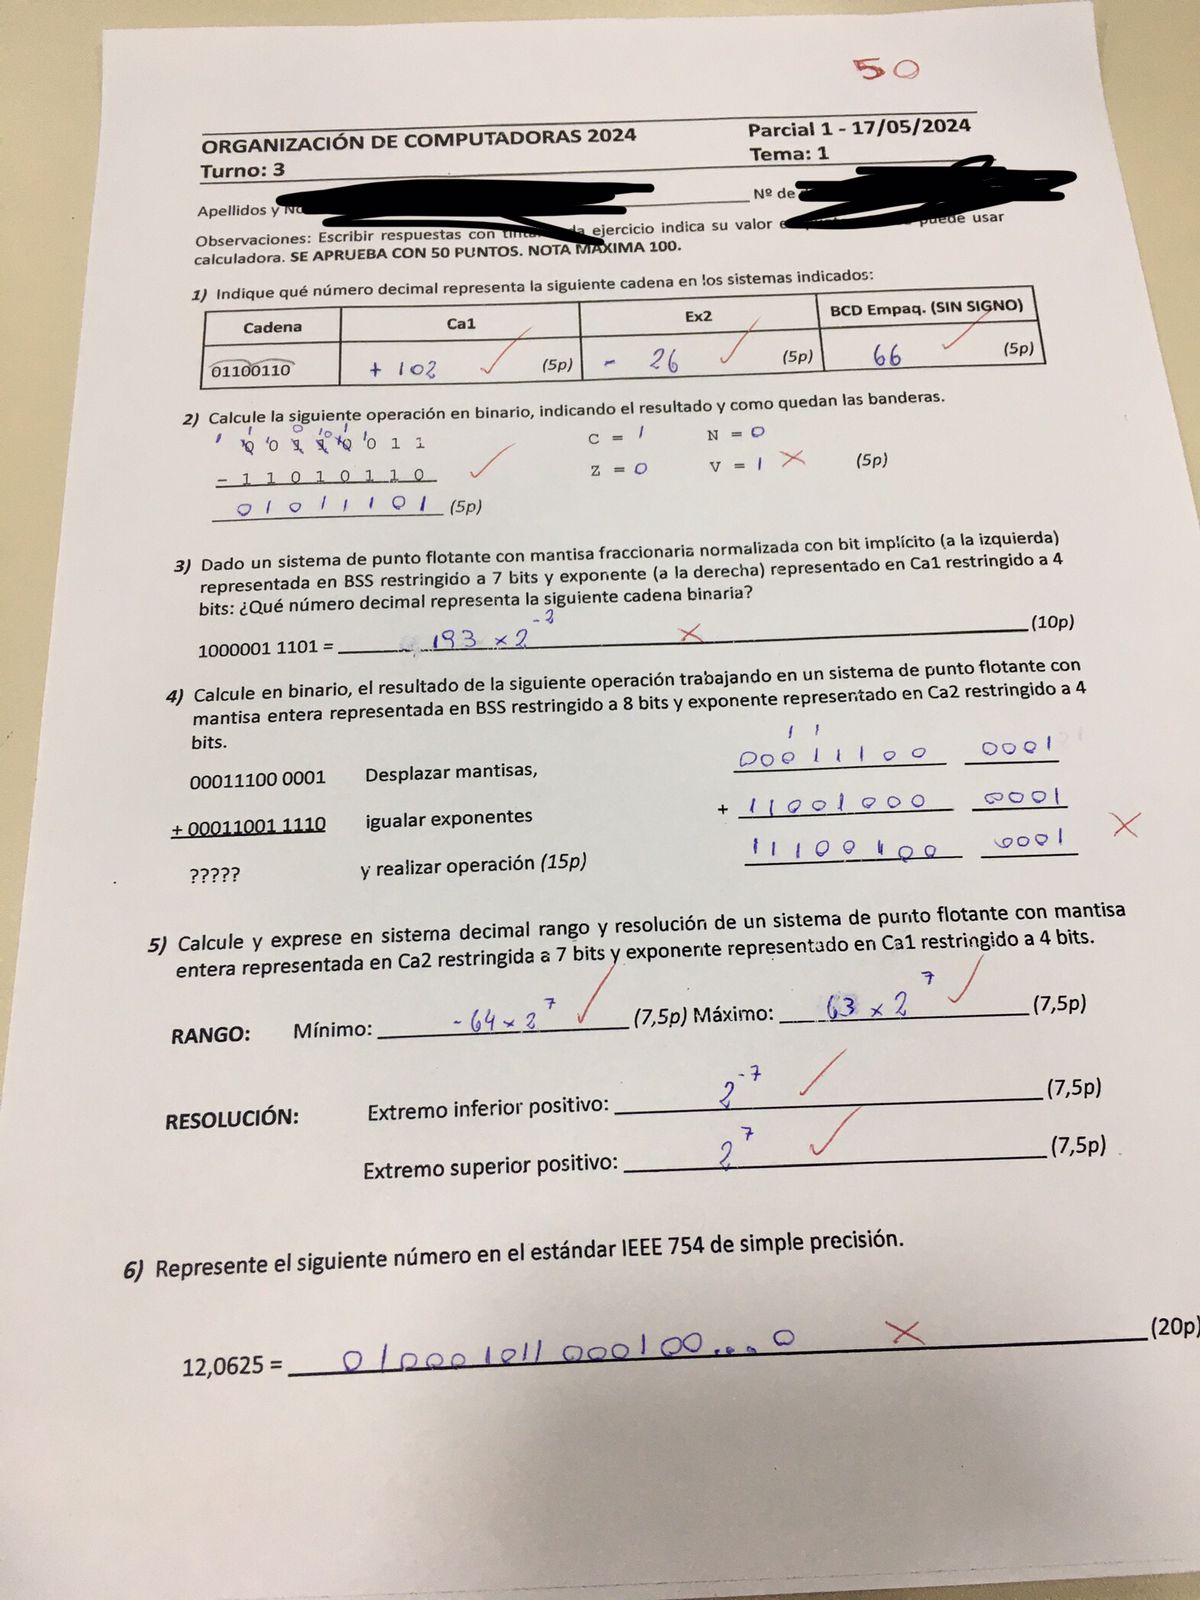 50
ORGANIZACIÓN DE COMPUTADORAS 2024
Parcial 1 - 17/05/2024
Turno: 3
Tema: 1
Apellidos y
Nº de
Observaciones: Escribir respuestas con ejercicio indica su valor puede usar
calculadora. SE APRUEBA CON 50 PUNTOS. NOTA MÁXIMA 100.
1) Indique qué número decimal representa la siguiente cadena en los sistemas indicados:
Cadena Ca1 Ex2 BCD Empaq. (SIN SIGNO)
01100110 + 102 (5p) - 26 (5p) 66 (5p)
2) Calcule la siguiente operación en binario, indicando el resultado y como quedan las banderas.
C = 1 N = 0
- 11010110
Z = 0 V = 1 (5p)
01011101 (5p)
3) Dado un sistema de punto flotante con mantisa fraccionaria normalizada con bit implícito (a la izquierda)
representada en BSS restringido a 7 bits y exponente (a la derecha) representado en Ca1 restringido a 4
bits: ¿Qué número decimal representa la siguiente cadena binaria?
1000001 1101 = 193 x 2^-2 (10p)
4) Calcule en binario, el resultado de la siguiente operación trabajando en un sistema de punto flotante con
mantisa entera representada en BSS restringido a 8 bits y exponente representado en Ca2 restringido a 4
bits.
1 1
00011100 0001 Desplazar mantisas, 00011100 0001
+ 00011001 1110 igualar exponentes + 11001000 0001
????? y realizar operación (15p) 11100100 0001
5) Calcule y exprese en sistema decimal rango y resolución de un sistema de punto flotante con mantisa
entera representada en Ca2 restringida a 7 bits y exponente representado en Ca1 restringido a 4 bits.
RANGO: Mínimo: -64 x 2^7 (7,5p) Máximo: 63 x 2^7 (7,5p)
RESOLUCIÓN: Extremo inferior positivo: 2^-7 (7,5p)
Extremo superior positivo: 2^7 (7,5p)
6) Represente el siguiente número en el estándar IEEE 754 de simple precisión.
12,0625 = 01000101100010 0....0 (20p)